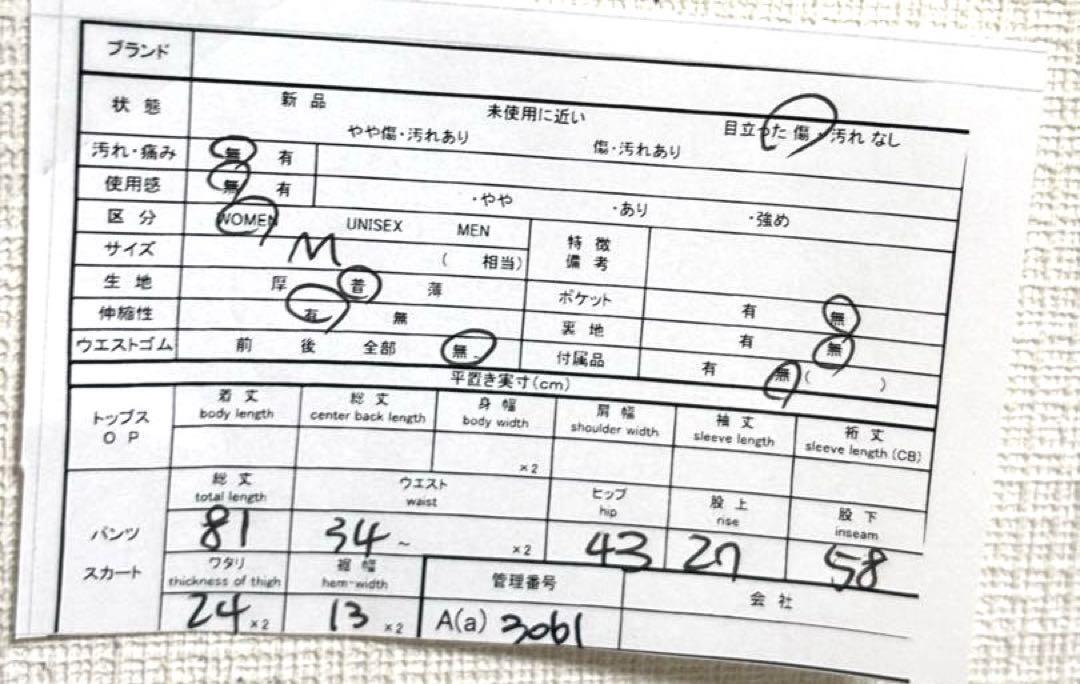 ブランド
状態 新品 未使用に近い 目立った傷・汚れなし
やや傷・汚れあり 傷・汚れあり
汚れ・痛み 無 有
使用感 無 有 ・やや ・あり ・強め
区分 WOMEN UNISEX MEN 特徴備考
サイズ M ( 相当)
生地 厚 普 薄 ポケット 有 無
伸縮性 有 無 裏地 有 無
ウエストゴム 前 後 全部 無 付属品 有 無 ( )
平置き実寸(cm)
トップス OP 着丈 総丈 身幅 肩幅 袖丈 裄丈
body length center back length body width shoulder width sleeve length sleeve length (CB)
×2
パンツ スカート 総丈 ウエスト ヒップ 股上 股下
total length waist hip rise inseam
81 34 ~ ×2 43 27 58
ワタリ 裾幅 管理番号 会社
thickness of thigh hem-width
24 ×2 13 ×2 A(a) 3061